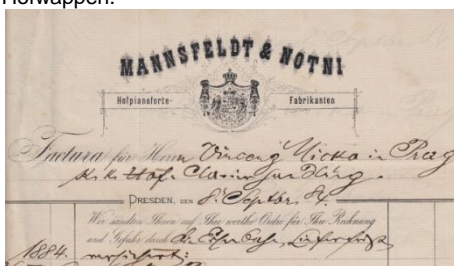 Hofwappen:
MANNSFELDT & NOTNI
Hofpianoforte-
Fabrikanten
Factura für Herrn Vincenz Micko in Prag
k. k. Hof. Clavierhandlung.
DRESDEN, DEN 8. Septbr. 84.
Wir sandten Ihnen auf Ihre werthe Ordre für Ihre Rechnung
und Gefahr durch
1884.
versichert: